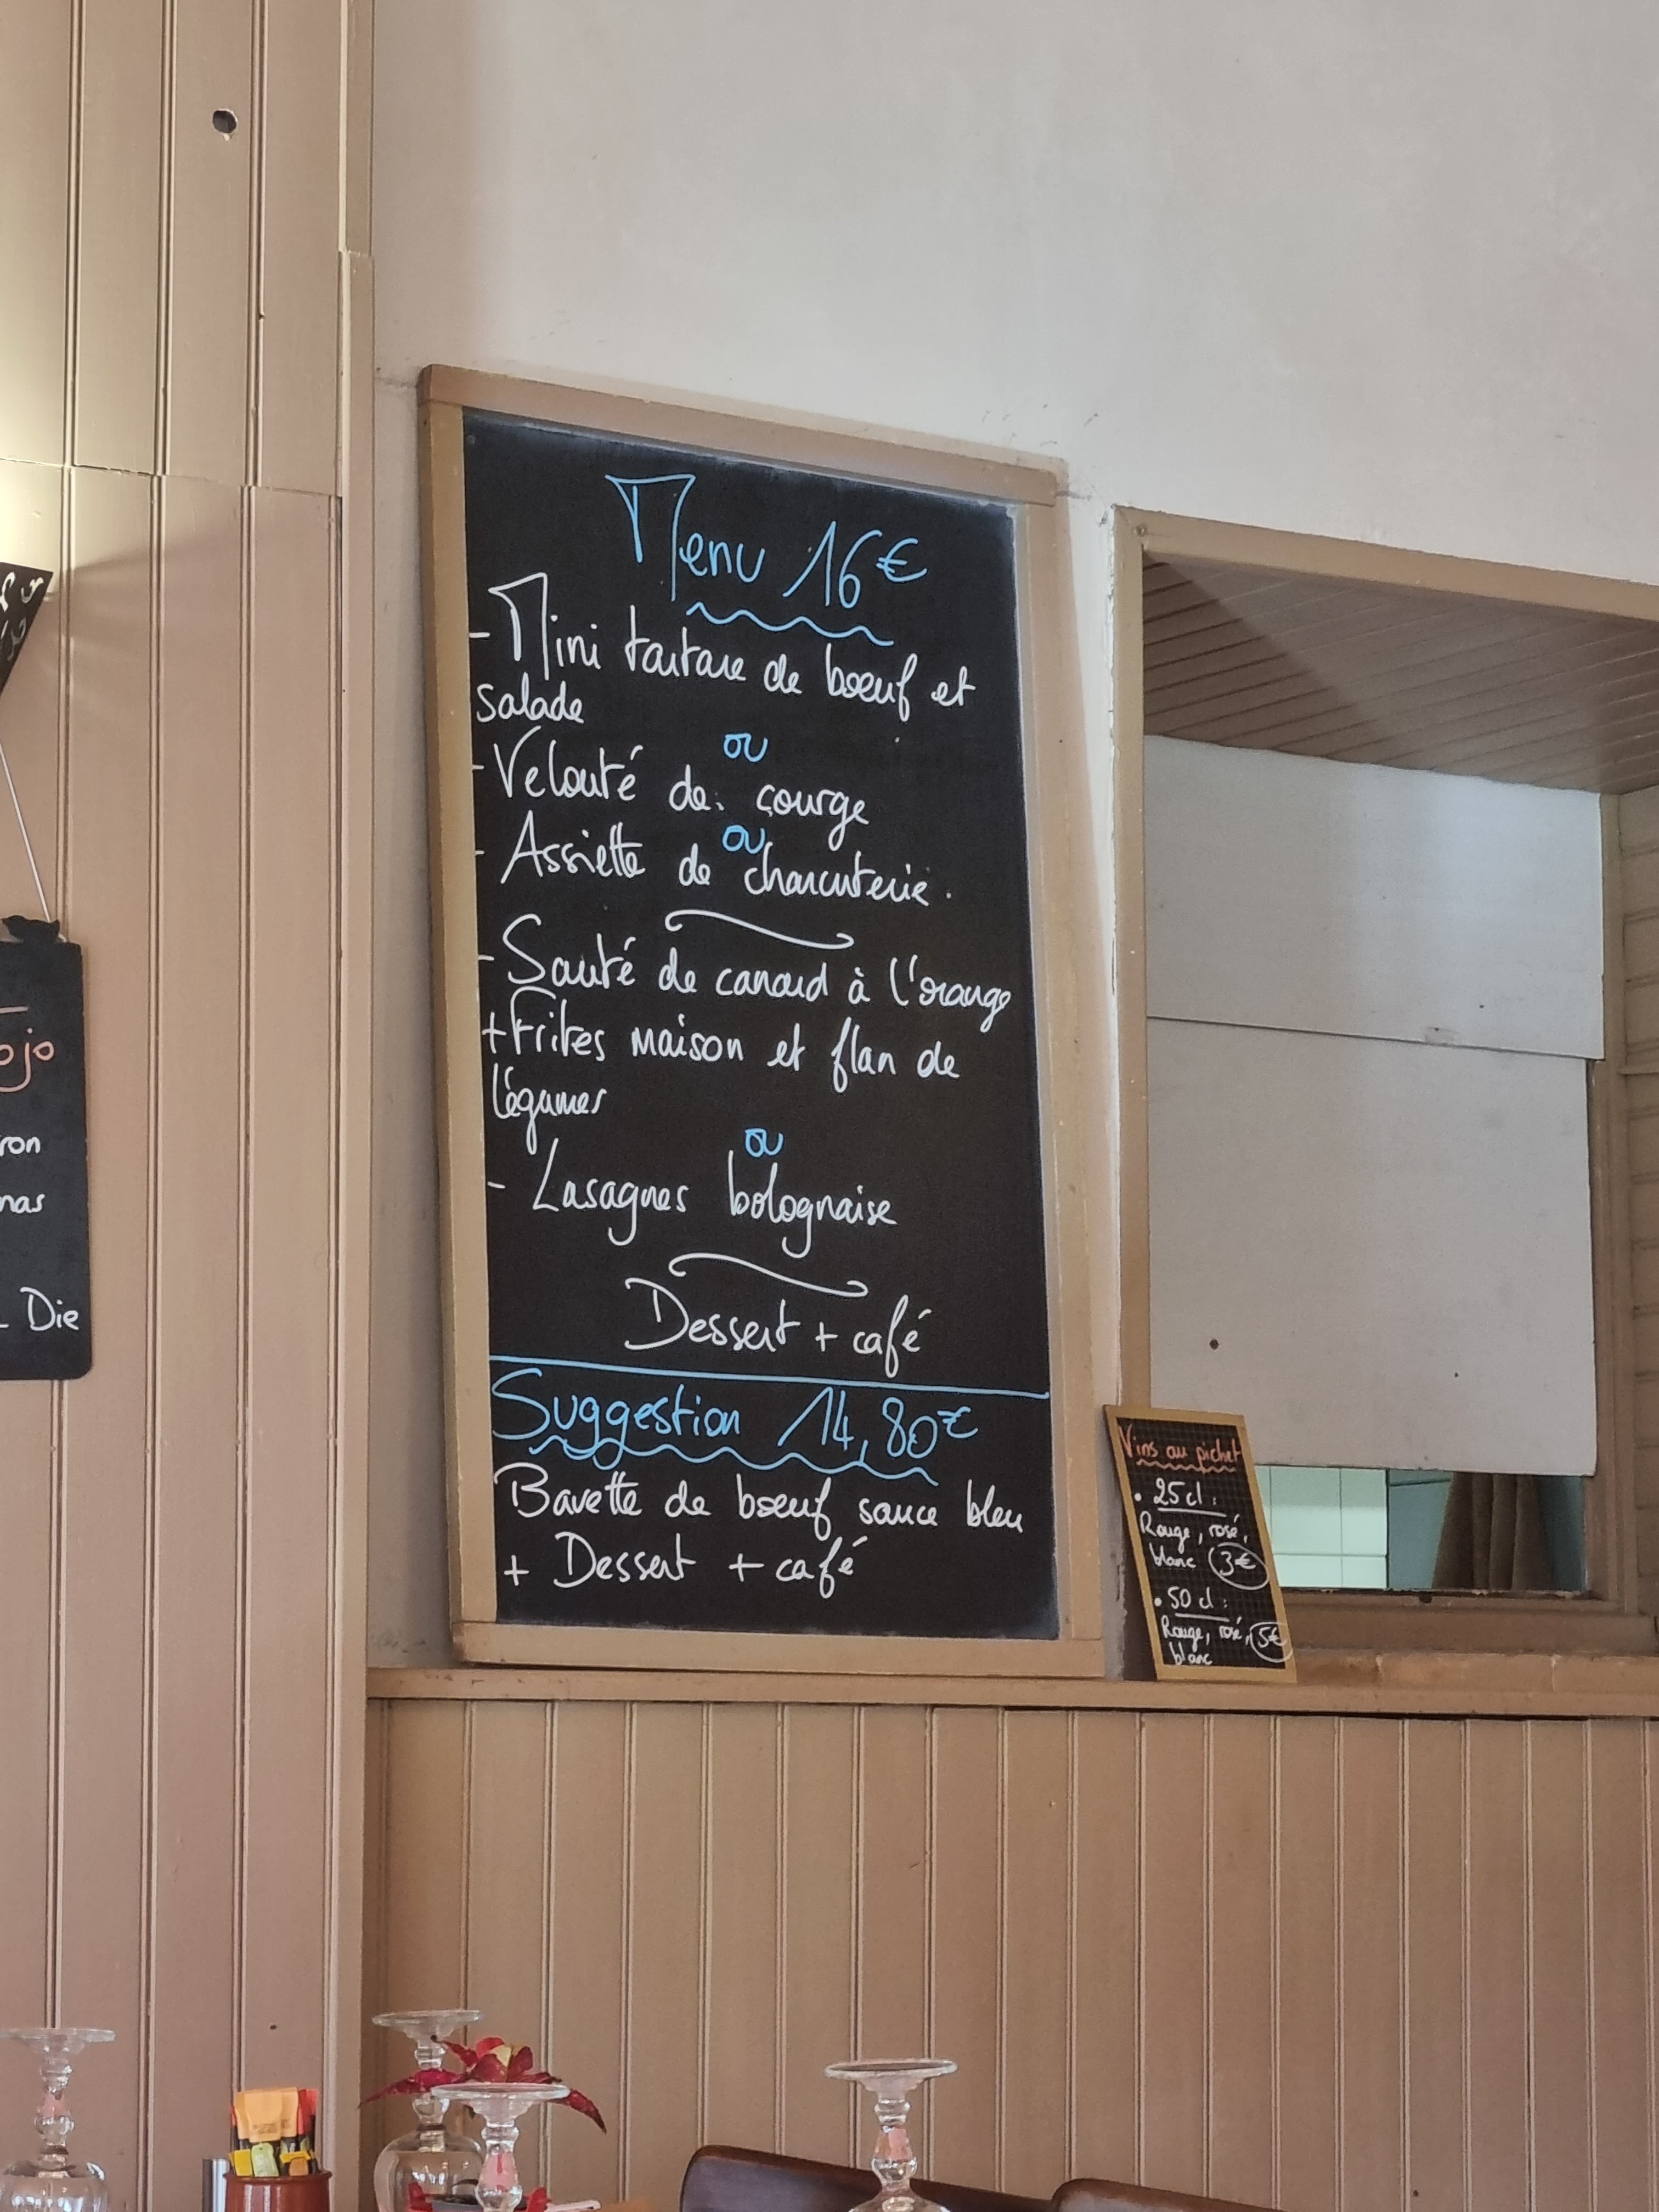 ojo
ron
nas
Die
Menu 16€
- Mini tartare de bœuf et
salade
ou
- Velouté de courge
ou
- Assiette de charcuterie.
- Sauté de canard à l'orange
+ Frites maison et flan de
légumes
ou
- Lasagnes bolognaise
Dessert + café
Suggestion 14,80€
Bavette de bœuf sauce bleu
+ Dessert + café
Vins au pichet
• 25 cl :
Rouge, rosé,
blanc 3€
• 50 cl :
Rouge, rosé, 5€
blanc